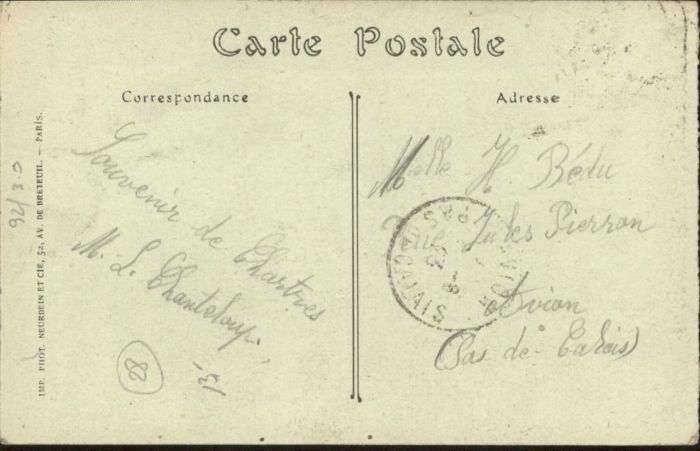 Carte Postale
Correspondance
Adresse
Souvenir de Chartres
M. L. Chanteloup.
Melle H Bédu
Rue Jules Pierron
Avion
(Pas de Calais)
28
15-
92/30
IMP. PHOT. NEURDEIN ET CIE, 52, AV. DE BRETEUIL. — PARIS.